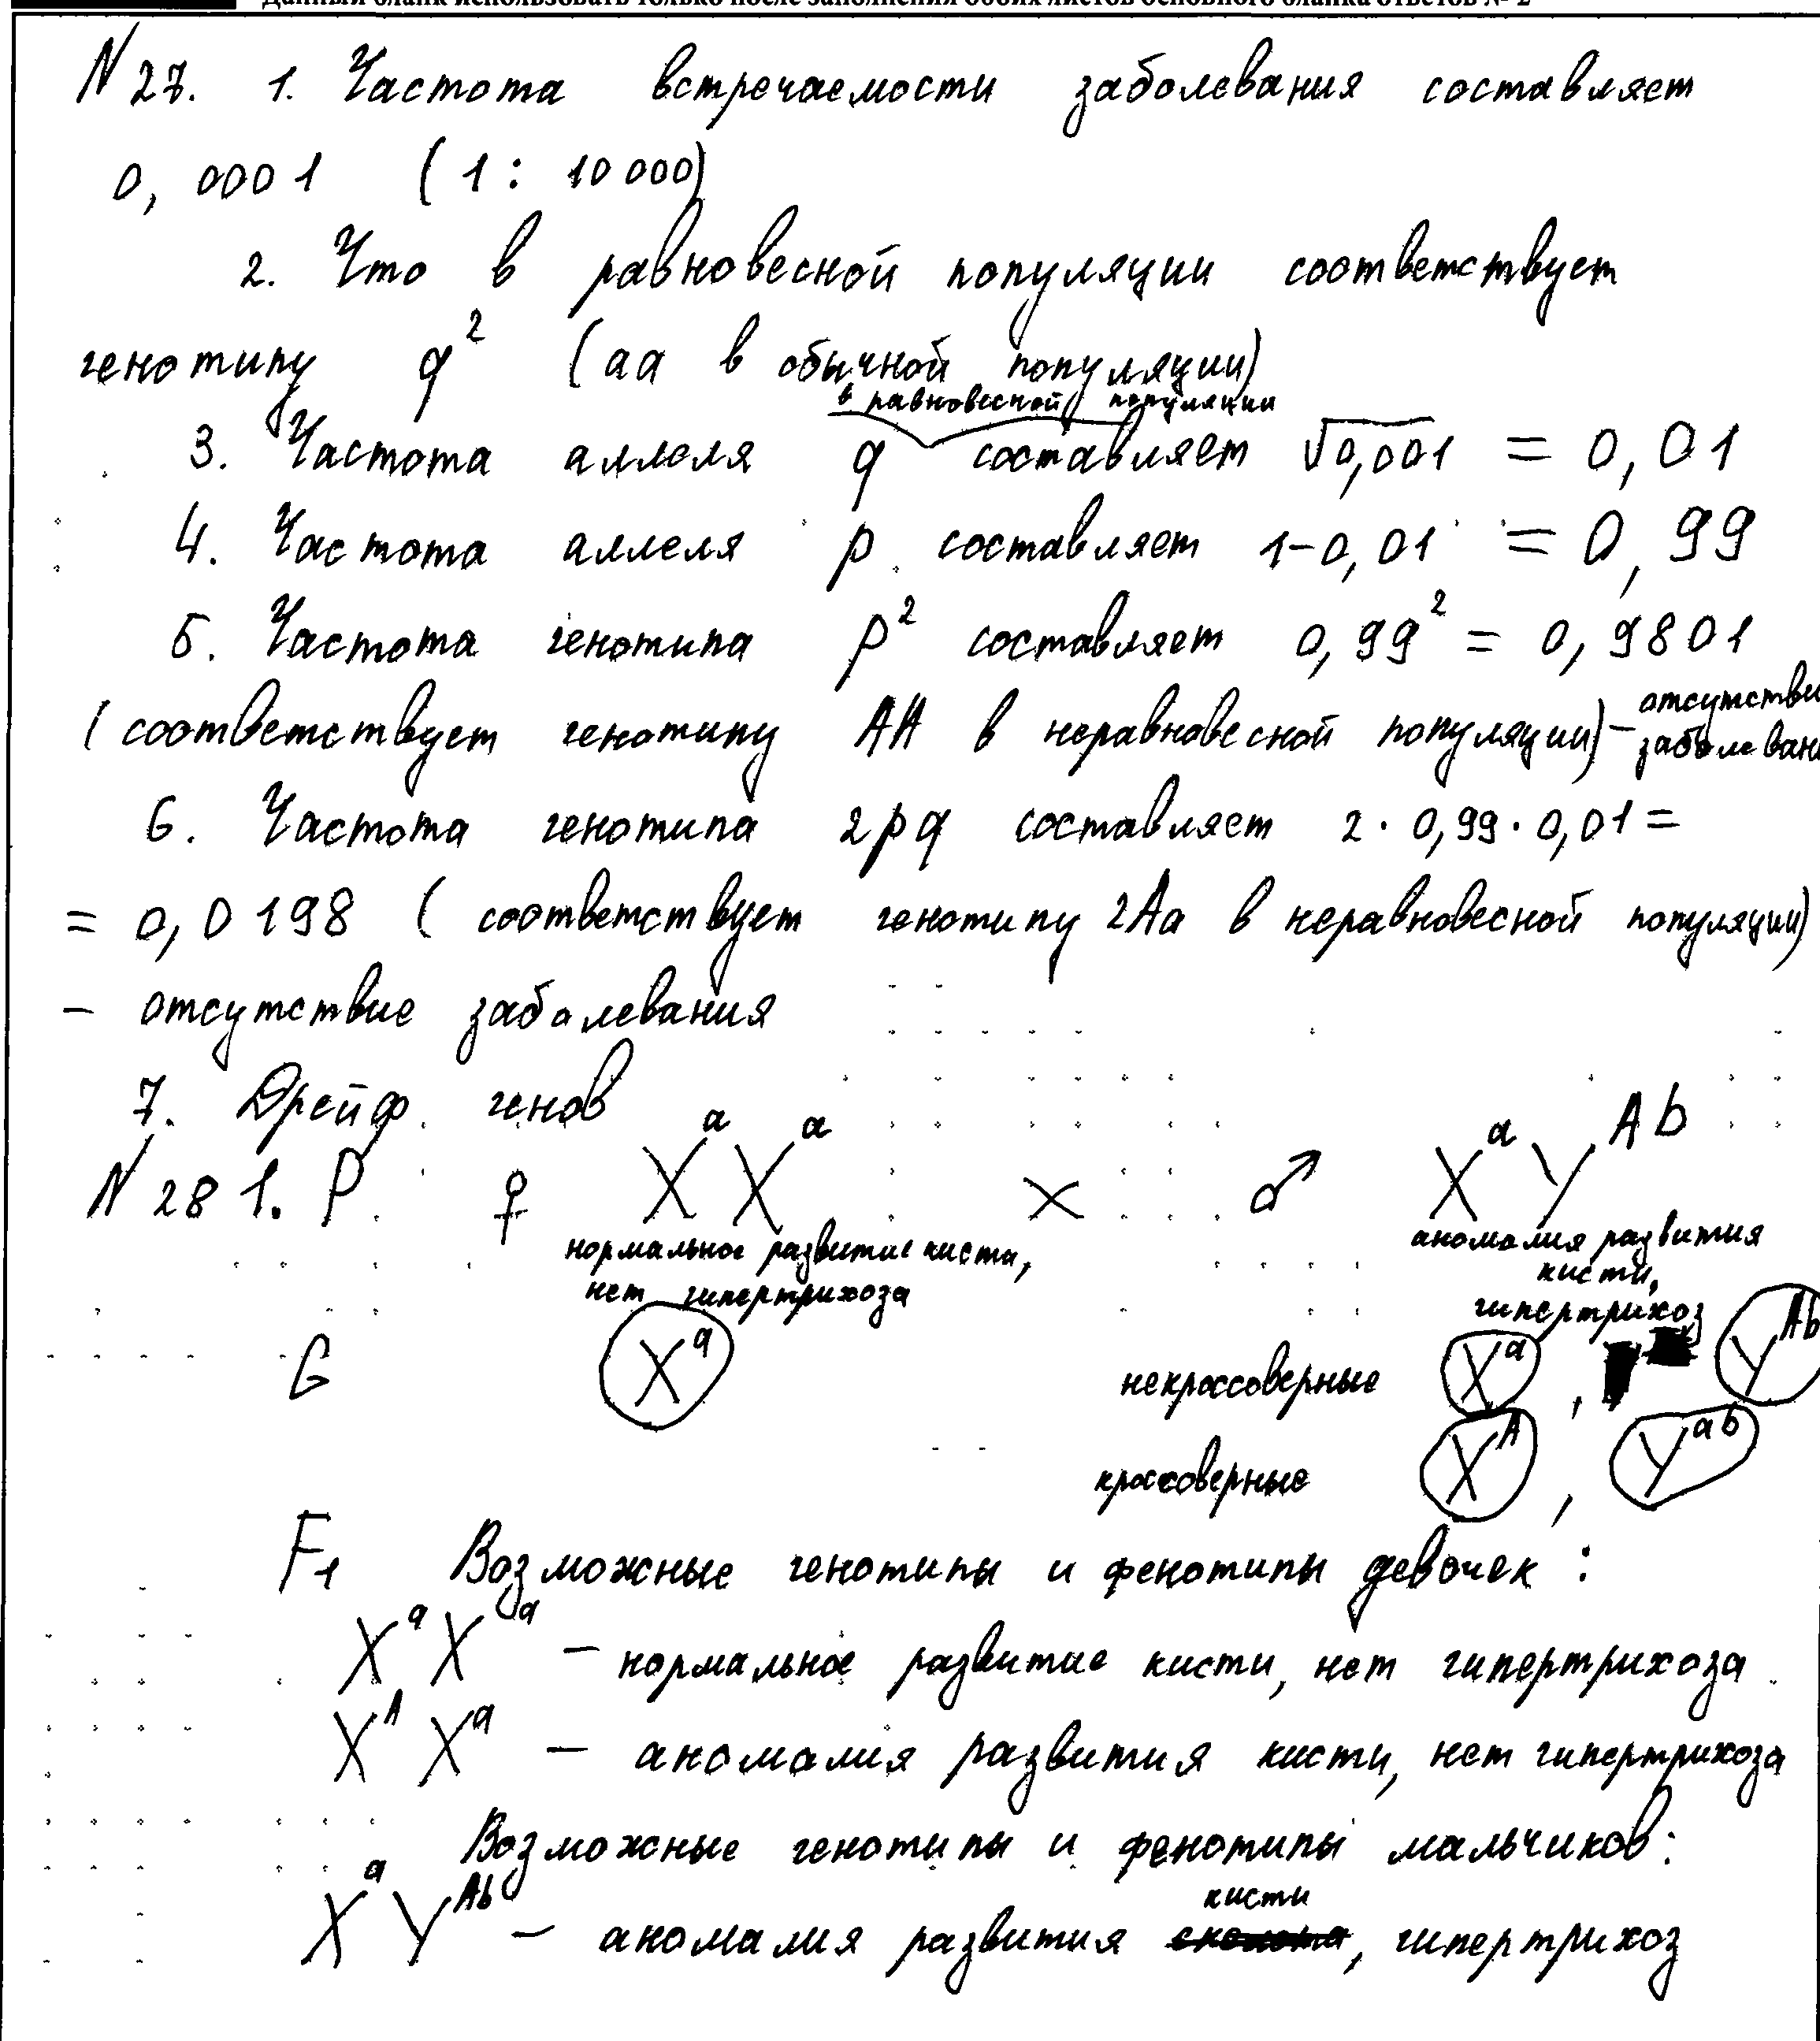 Данный бланк использовать только после заполнения обоих листов основного бланка ответов № 2
N 27. 1. Частота встречаемости заболевания составляет
0,0001 (1 : 10 000)
2. Что в равновесной популяции соответствует
генотипу q² (aa в обычной популяции)
в равновесной популяции
3. Частота аллеля q составляет √0,001 = 0,01
4. Частота аллеля p составляет 1-0,01 = 0,99
5. Частота генотипа p² составляет 0,99² = 0,9801
(соответствует генотипу AA в неравновесной популяции) – отсутстви
заболеван
6. Частота генотипа 2pq составляет 2 · 0,99 · 0,01 =
= 0,0198 (соответствует генотипу 2Aa в неравновесной популяции)
– отсутствие заболевания
7. Дрейф генов
N 28 1. P ♀ XᵃXᵃ × ♂ XᵃYᴬᵇ
нормальное развитие кисти, аномалия развития
нет гипертрихоза кисти,
гипертрихоз
G Xᵃ некроссоверные Xᵃ, Yᴬᵇ
кроссоверные Xᴬ, Yᵃᵇ
F₁ Возможные генотипы и фенотипы девочек :
XᵃXᵃ – нормальное развитие кисти, нет гипертрихоза
XᴬXᵃ – аномалия развития кисти, нет гипертрихоза
Возможные генотипы и фенотипы мальчиков:
XᵃYᴬᵇ – аномалия развития кисти, гипертрихоз